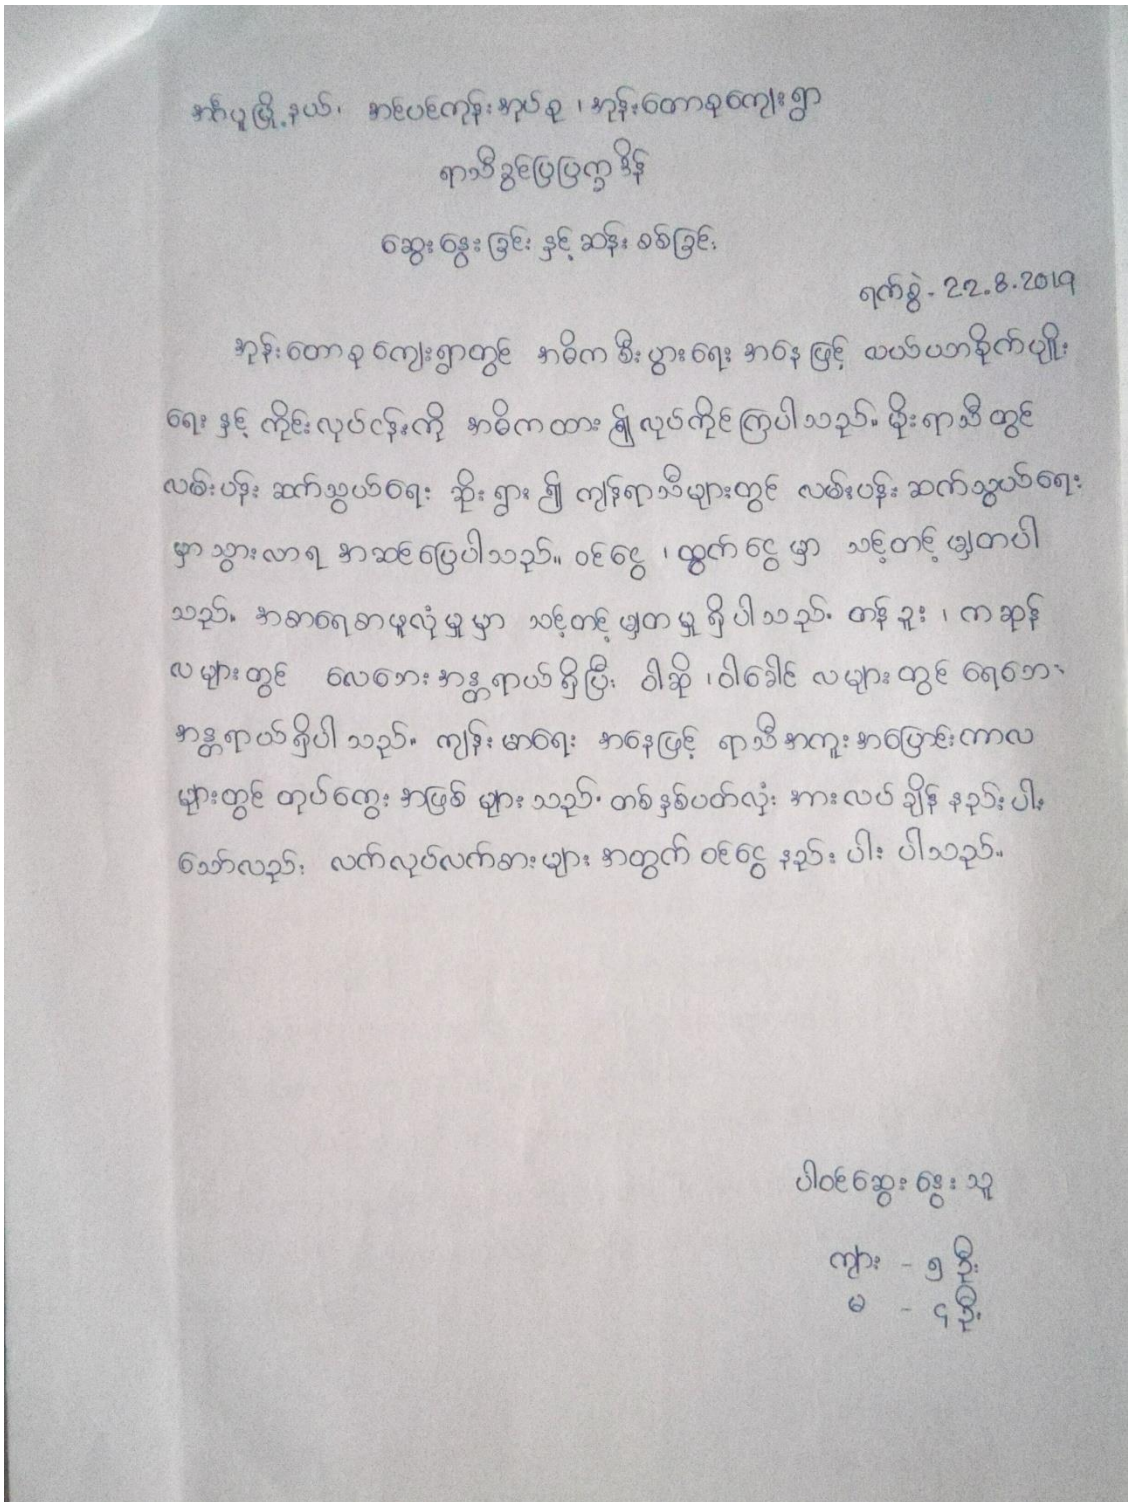 အင်္ဂပူမြို့နယ်၊ အင်ပင်ကုန်းအုပ်စု ၊ အုန်းတောစုကျေးရွာ
ရာသီခွင်ပြပြက္ခဒိန်
ဆွေးနွေးခြင်း နှင့် ဆန်းစစ်ခြင်း
ရက်စွဲ - 22.8.2019
အုန်းတောစုကျေးရွာတွင် အဓိက စီးပွားရေး အနေဖြင့် လယ်ယာစိုက်ပျိုး
ရေး နှင့် ကိုင်းလုပ်ငန်းကို အဓိကထား ၍ လုပ်ကိုင်ကြပါသည်။ မိုးရာသီတွင်
လမ်းပန်း ဆက်သွယ်ရေး ဆိုးရွား ၍ ကျန်ရာသီများတွင် လမ်းပန်း ဆက်သွယ်ရေး
မှာ သွားလာရ အဆင်ပြေပါသည်။ ဝင်ငွေ ၊ ထွက်ငွေ မှာ သင့်တင့် မျှတပါ
သည်။ အစာရေစာဖူလုံမှုမှာ သင့်တင့် မျှတမှု ရှိပါသည်။ တန်ခူး ၊ ကဆုန်
လများတွင် လေဘေးအန္တရာယ်ရှိပြီး ဝါဆို ၊ ဝါခေါင် လများတွင် ရေဘေး
အန္တရာယ်ရှိပါသည်။ ကျန်းမာရေး အနေဖြင့် ရာသီအကူးအပြောင်းကာလ
များတွင် တုပ်ကွေး အဖြစ် များသည်။ တစ်နှစ်ပတ်လုံး အားလပ်ချိန် နည်းပါး
သော်လည်း လက်လုပ်လက်စားများ အတွက် ဝင်ငွေ နည်းပါးပါသည်။
ပါဝင်ဆွေးနွေးသူ
ကျား - ၅ ဦး
မ - ၄ ဦး